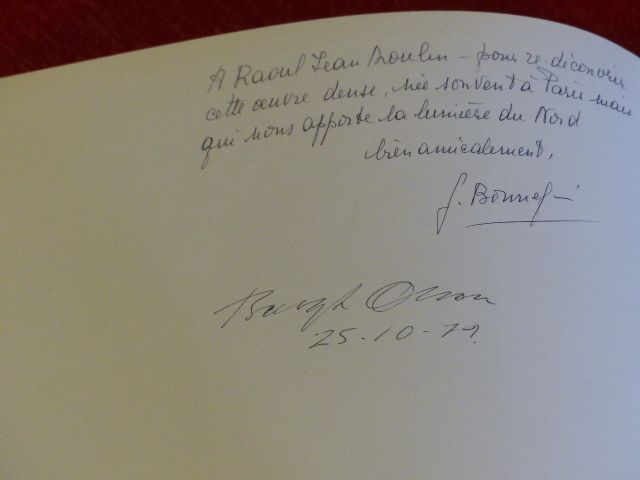 A Raoul Jean Moulin – pour re-découvrir
cette œuvre dense, née souvent à Paris mais
qui nous apporte la lumière du Nord
bien amicalement,
G. Bonnefoi
Bengt Olson
25-10-79.